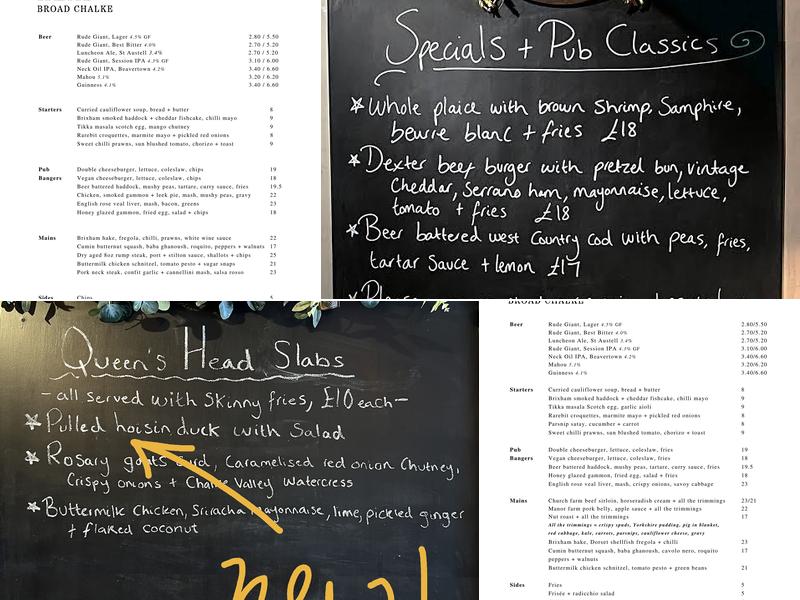 BROAD CHALKE
Beer
Rude Giant, Lager 4.5% GF 2.80 / 5.50
Rude Giant, Best Bitter 4.0% 2.70 / 5.20
Luncheon Ale, St Austell 3.4% 2.70 / 5.20
Rude Giant, Session IPA 4.3% GF 3.10 / 6.00
Neck Oil IPA, Beavertown 4.2% 3.40 / 6.60
Mahou 5.1% 3.20 / 6.20
Guinness 4.1% 3.40 / 6.60
Starters
Curried cauliflower soup, bread + butter 8
Brixham smoked haddock + cheddar fishcake, chilli mayo 9
Tikka masala scotch egg, mango chutney 9
Rarebit croquettes, marmite mayo + pickled red onions 8
Sweet chilli prawns, sun blushed tomato, chorizo + toast 9
Pub Bangers
Double cheeseburger, lettuce, coleslaw, chips 19
Vegan cheeseburger, lettuce, coleslaw, chips 18
Beer battered haddock, mushy peas, tartare, curry sauce, fries 19.5
Chicken, smoked gammon + leek pie, mash, mushy peas, gravy 22
English rose veal liver, mash, bacon, greens 23
Honey glazed gammon, fried egg, salad + chips 18
Mains
Brixham hake, fregola, chilli, prawns, white wine sauce 22
Cumin butternut squash, baba ghanoush, roquito, peppers + walnuts 17
Dry aged 8oz rump steak, port + stilton sauce, shallots + chips 25
Buttermilk chicken schnitzel, tomato pesto + sugar snaps 21
Pork neck steak, confit garlic + cannellini mash, salsa rosso 23
Sides
Chips 5
Specials + Pub Classics
Whole plaice with brown Shrimp, Samphire,
beurre blanc + fries £18
Dexter beef burger with pretzel bun, vintage
Cheddar, Serrano ham, mayonnaise, lettuce,
tomato + fries £18
Beer battered west Country cod with peas, fries,
tartar Sauce + lemon £17
Queen's Head Slabs
- all served with Skinny fries, £10 each -
Pulled hoisin duck with Salad
Rosary goats curd, Caramelised red onion Chutney,
Crispy onions + Chalke Valley Watercress
Buttermilk Chicken, Sriracha Mayonnaise, lime, pickled ginger
+ flaked coconut
new!
BROAD CHALKE
Beer
Rude Giant, Lager 4.5% GF 2.80/5.50
Rude Giant, Best Bitter 4.0% 2.70/5.20
Luncheon Ale, St Austell 3.4% 2.70/5.20
Rude Giant, Session IPA 4.3% GF 3.10/6.00
Neck Oil IPA, Beavertown 4.2% 3.40/6.60
Mahou 5.1% 3.20/6.20
Guinness 4.1% 3.40/6.60
Starters
Curried cauliflower soup, bread + butter 8
Brixham smoked haddock + cheddar fishcake, chilli mayo 9
Tikka masala Scotch egg, garlic aioli 9
Rarebit croquettes, marmite mayo + pickled red onions 8
Parsnip satay, cucumber + carrot 8
Sweet chilli prawns, sun blushed tomato, chorizo + toast 9
Pub Bangers
Double cheeseburger, lettuce, coleslaw, fries 19
Vegan cheeseburger, lettuce, coleslaw, fries 18
Beer battered haddock, mushy peas, tartare, curry sauce, fries 19.5
Honey glazed gammon, fried egg, salad + fries 18
English rose veal liver, mash, crispy onions, savoy cabbage 23
Mains
Church farm beef sirloin, horseradish cream + all the trimmings 23/21
Manor farm pork belly, apple sauce + all the trimmings 22
Nut roast + all the trimmings 17
All the trimmings = crispy spuds, Yorkshire pudding, pig in blanket,
red cabbage, kale, carrots, parsnips, cauliflower cheese, gravy
Brixham hake, Dorset shellfish fregola + chilli 23
Cumin butternut squash, baba ghanoush, cavolo nero, roquito 17
peppers + walnuts
Buttermilk chicken schnitzel, tomato pesto + green beans 21
Sides
Fries 5
Frisée + radicchio salad 5